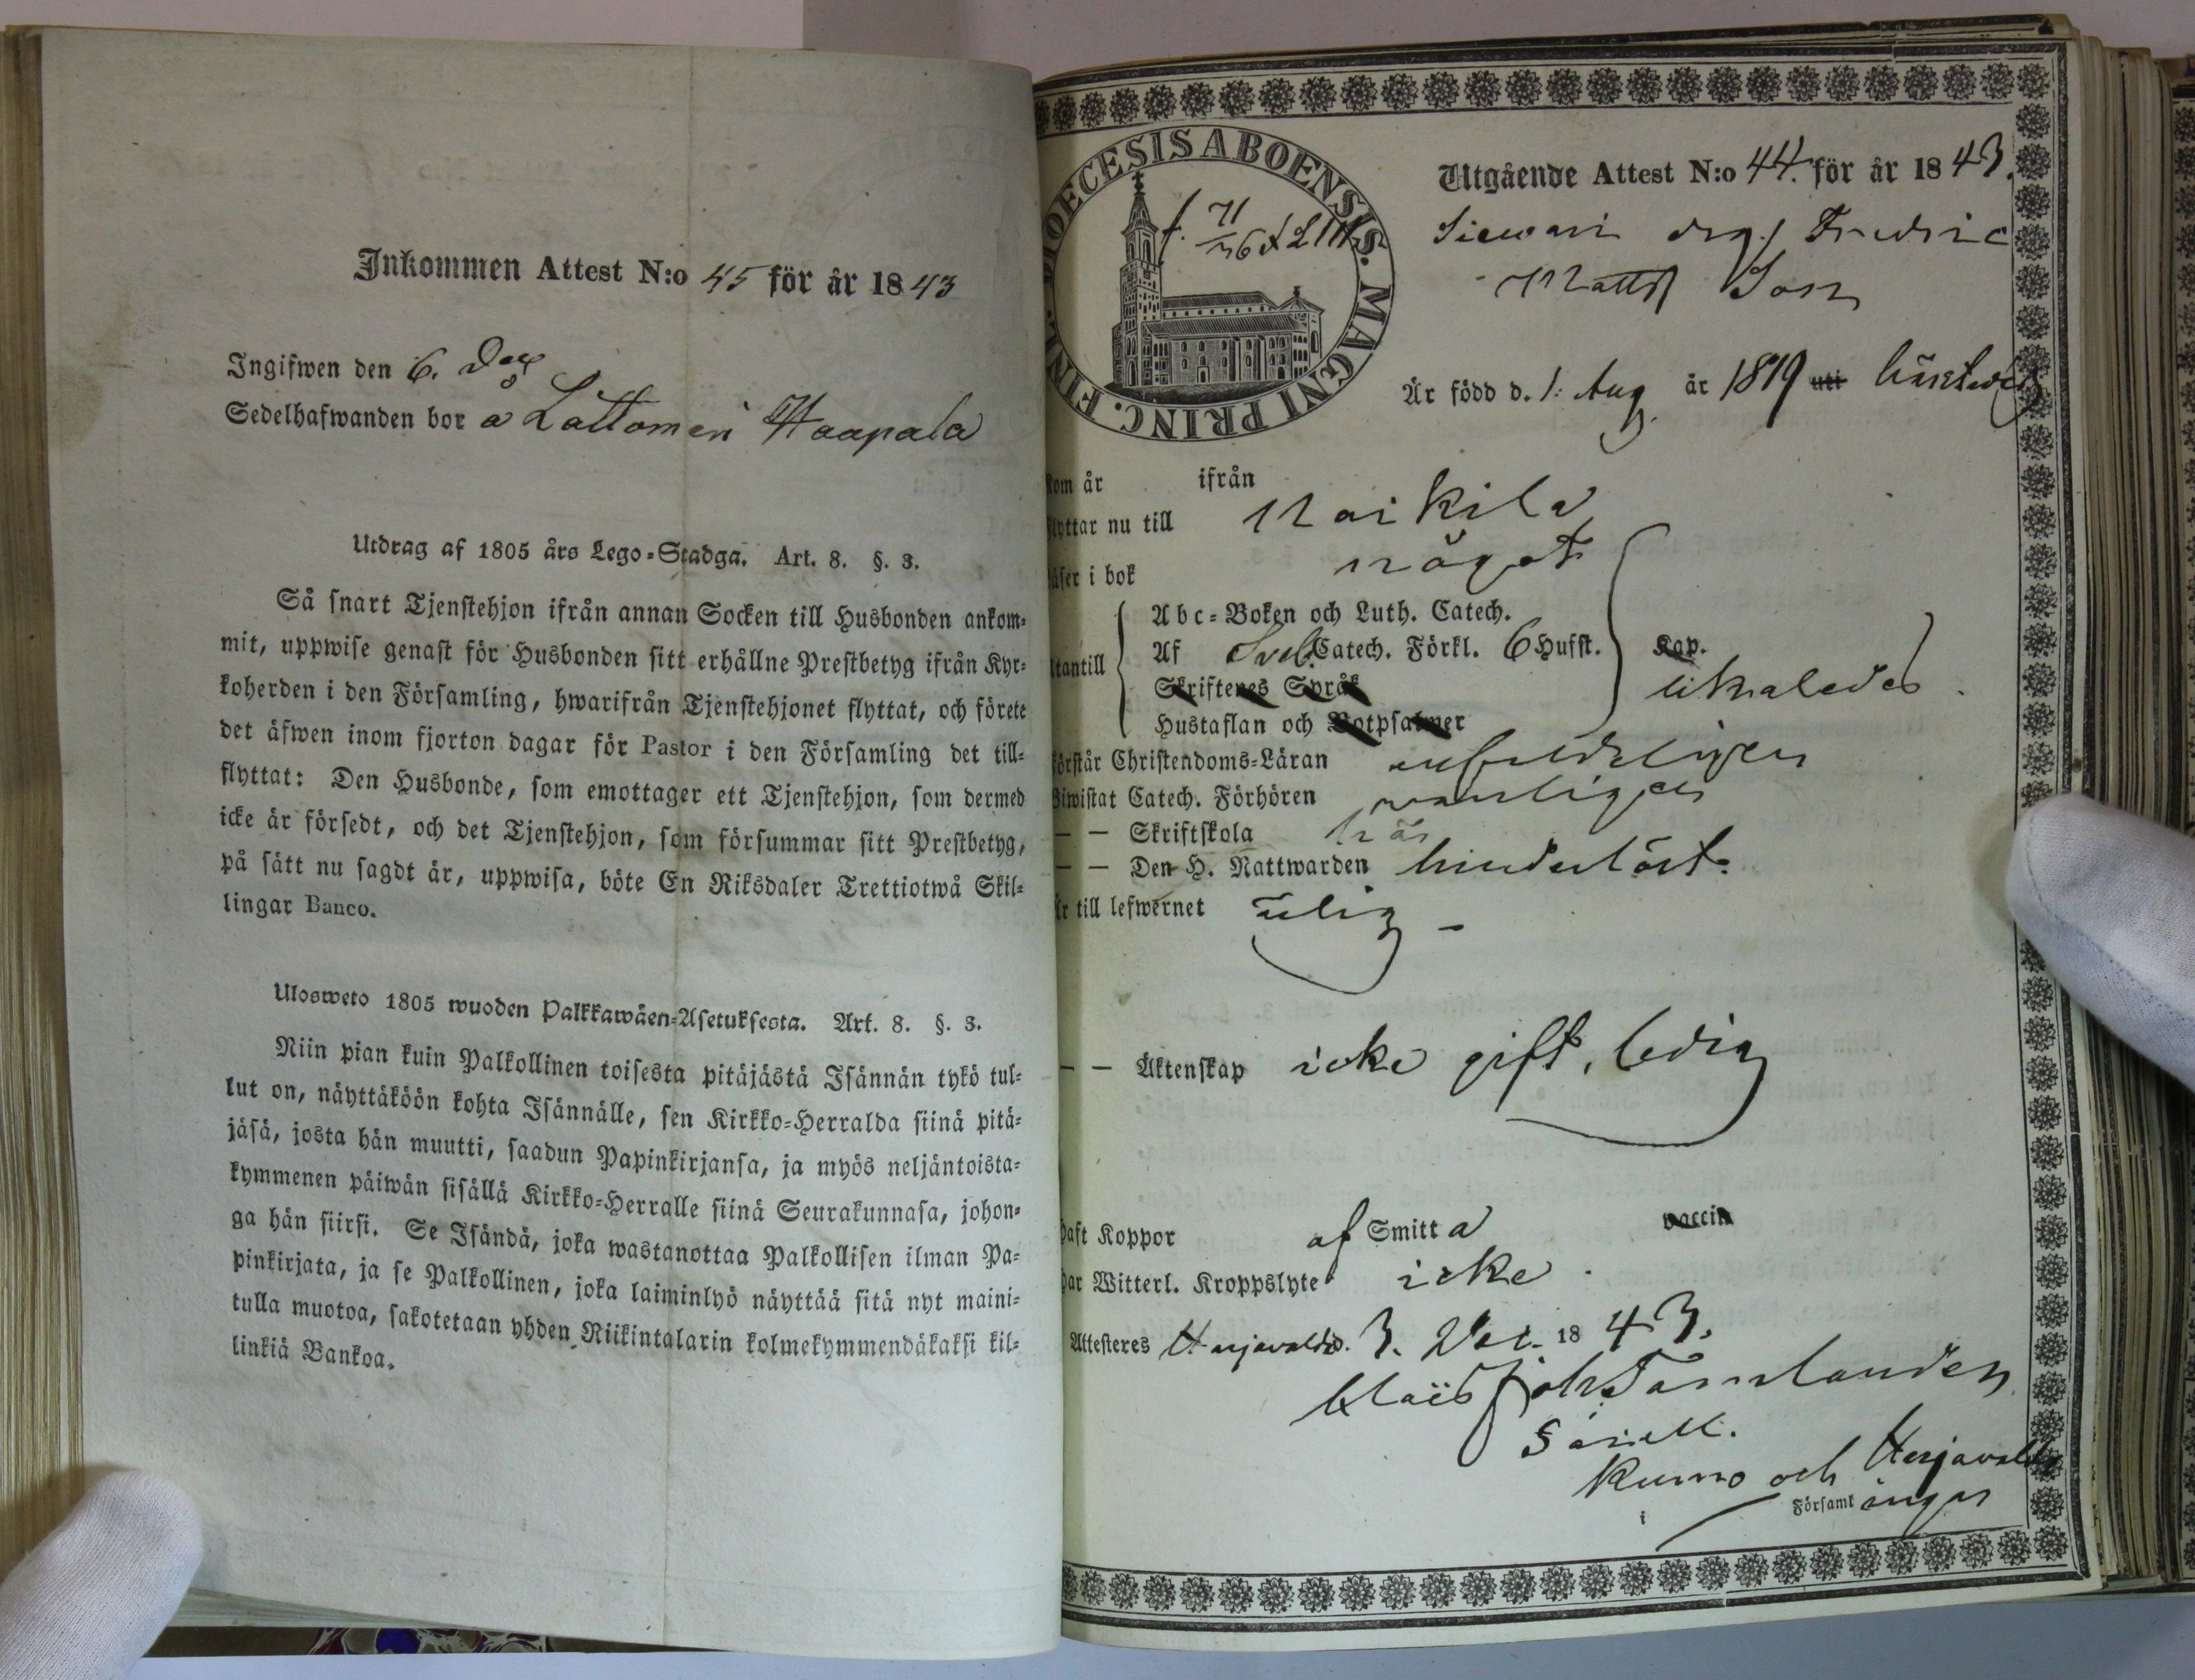 Inkommen Attest N:o 45 för år 1843
Ingifwen den 6. Dec
Sedelhafwanden bor a Lattomeri Haapala
Utdrag af 1805 års Lego-Stadga. Art. 8. §. 3.
Så snart Tjenstehjon ifrån annan Socken till Husbonden ankom-
mit, uppwise genast för Husbonden sitt erhållne Prestbetyg ifrån Kyr-
koherden i den Församling, hwarifrån Tjenstehjonet flyttat, och förete
det äfwen inom fjorton dagar för Pastor i den Församling det till-
flyttat: Den Husbonde, som emottager ett Tjenstehjon, som dermed
icke är försedt, och det Tjenstehjon, som försummar sitt Prestbetyg,
på sätt nu sagdt är, uppwisa, böte En Riksdaler Trettiotwå Skil-
lingar Banco.
Ulosweto 1805 wuoden Palkkawäen-Asetuksesta. Art. 8. §. 3.
Niin pian kuin Palkollinen toisesta pitäjästä Isännän tykö tul-
lut on, näyttäköön kohta Isännälle, sen Kirkko-Herralda siinä pitä-
jäsä, josta hän muutti, saadun Papinkirjansa, ja myös neljäntoista-
kymmenen päiwän sisällä Kirkko-Herralle siinä Seurakunnasa, johon-
ga hän siirsi. Se Isändä, joka wastanottaa Palkollisen ilman Pa-
pinkirjata, ja se Palkollinen, joka laiminlyö näyttää sitä nyt maini-
tulla muotoa, sakotetaan yhden Riikintalarin kolmekymmendäkaksi kil-
linkiä Bankoa.
DIOECESIS ABOENSIS. MAGNI PRINC. FINL.
Utgående Attest N:o 44. för år 1843.
drg. Fredric
Matts Son
Är född d. 1. Aug. år 1819 uti
kom år ifrån
flyttar nu till Naikila
läser i bok något
utantill
Abc-Boken och Luth. Catech.
Af Sveb. Catech. Förkl. 6 Hufst. Kap.
Skriftenes Språk likaledes.
Hustaflan och Botpsalmer
förstår Christendoms-Läran enfaldeligen
Biwistat Catech. Förhören wanligen
— — Skriftskola här
— — Den H. Nattwarden hinderlöst.
Är till lefwernet ärlig
— — Äktenskap icke gift, ledig
haft Koppor af Smitta vaccin
har Witterl. Kroppslyte icke.
Attesteras Harjavalda d. 3. Dec. 1843.
Claës Joh Tamlander
Kumo och Harjavalda
i Församlingar